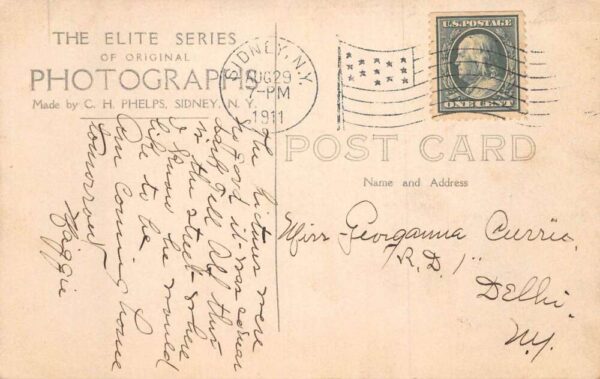 THE ELITE SERIES
OF ORIGINAL
PHOTOGRAPHS
Made by C. H. PHELPS, SIDNEY, N. Y.
SIDNEY, N.Y.
AUG 29
7-PM
1911
U.S. POSTAGE
ONE CENT
POST CARD
Name and Address
The pictures were
good it was
dark tell
in the street where
I know he would
like to be
Am coming home
tomorrow
Maggie
Miss Georganna Currie,
"R.D. 1"
Delhi
N.Y.